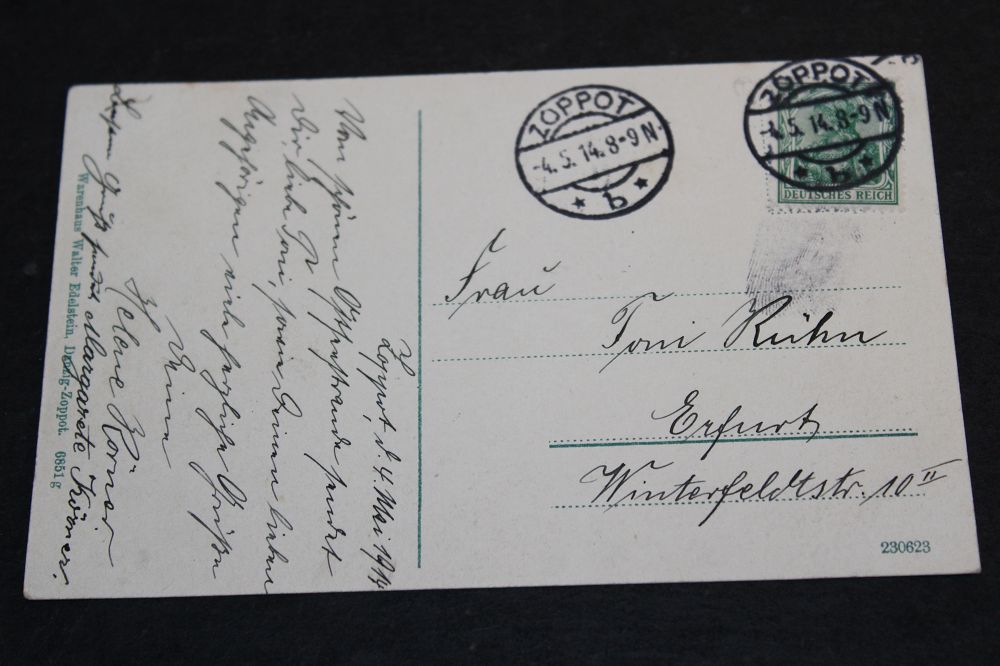 Zoppot, d. 4. Mai 1914
Vom schönen Ostseestrande sendet
Dir, liebe Toni, sowie Deinen lieben
Angehörigen viele herzliche Grüße
Deine
Helene Körner
Gruß sendet Margarete Körner.
Warenhaus Walter Edelstein, Danzig-Zoppot. 6851g
ZOPPOT
-4.5.14.8-9N.
* b *
ZOPPOT
-4.5.14.8-9N.
* b *
DEUTSCHES REICH
Frau
Toni Kühn
Erfurt
Winterfeldtstr. 10 II
230623